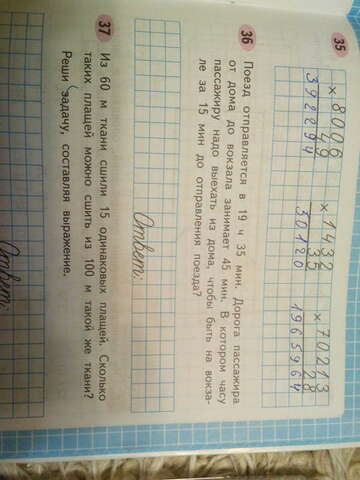 35
× 8006 × 1432 × 70213
49 35 28
392294 50120 1965964
36 Поезд отправляется в 19 ч 35 мин. Дорога пассажира
от дома до вокзала занимает 45 мин. В котором часу
пассажиру надо выехать из дома, чтобы быть на вокза-
ле за 15 мин до отправления поезда?
Ответ:
37 Из 60 м ткани сшили 15 одинаковых плащей. Сколько
таких плащей можно сшить из 100 м такой же ткани?
Реши задачу, составляя выражение.
Ответ: